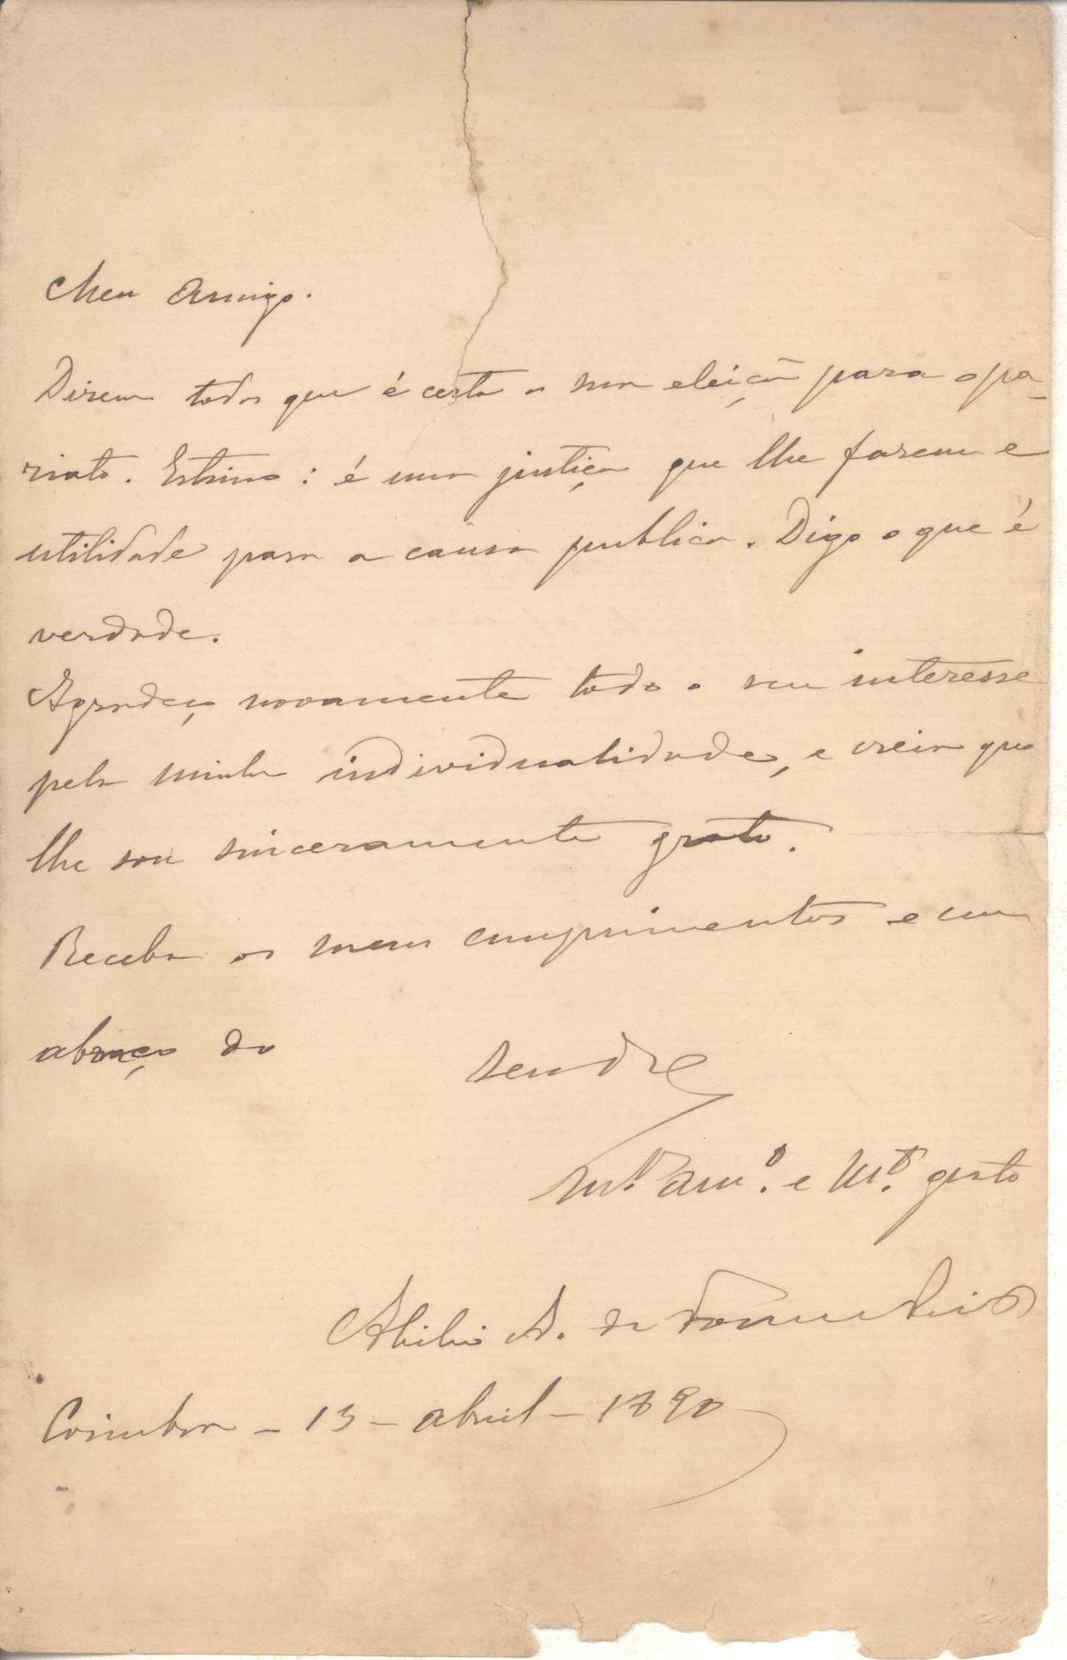 Meu Amigo.
Dizem todos que é certa a sua eleição para o pa-
riato. Estimo: é uma justiça que lhe fazem e
utilidade para a causa publica. Digo o que é
verdade.
Agradeço novamente todo o seu interesse
pela minha individualidade, e creia que
lhe sou sinceramente grato.
Receba os meus cumprimentos e um
abraço do
am.º e m.to grato
Abilio A. da
Coimbra - 13 - abril - 1890